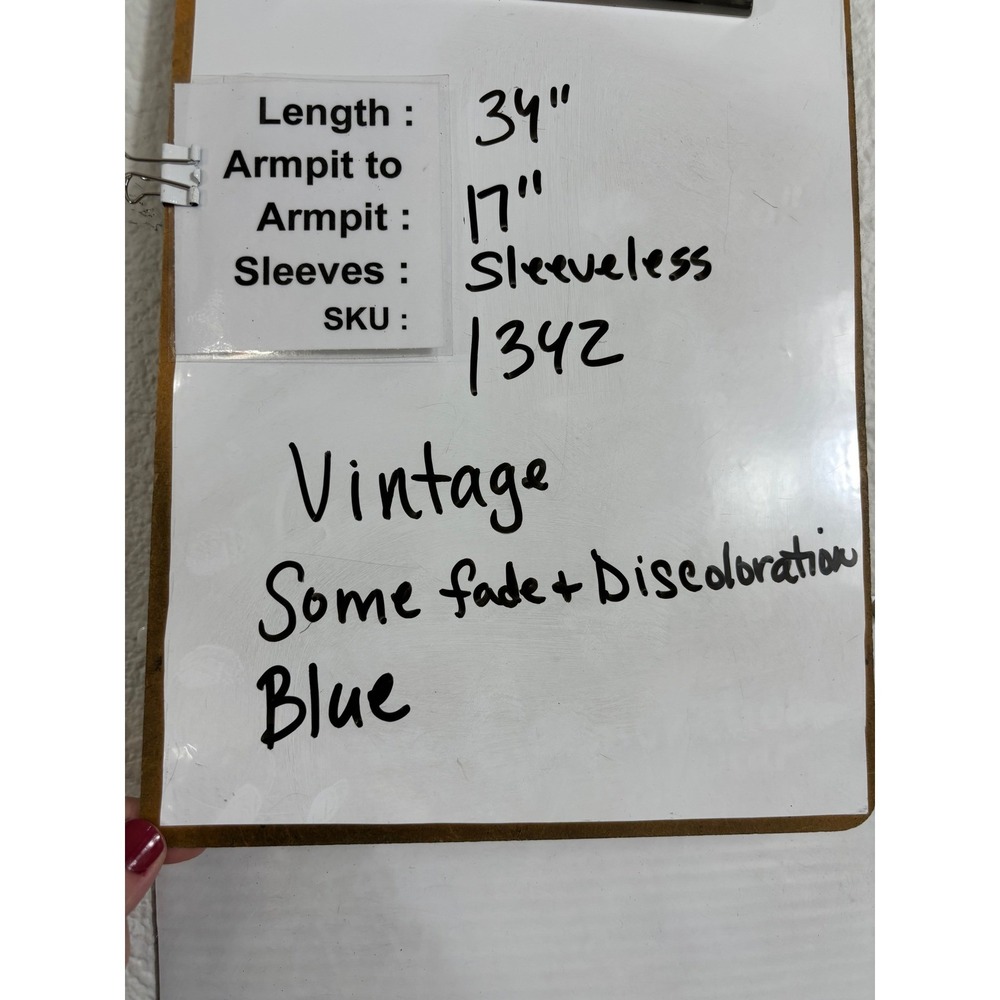 Length : 34"
Armpit to
Armpit : 17"
Sleeves : Sleeveless
SKU : 1342
Vintage
Some fade + Discoloration
Blue